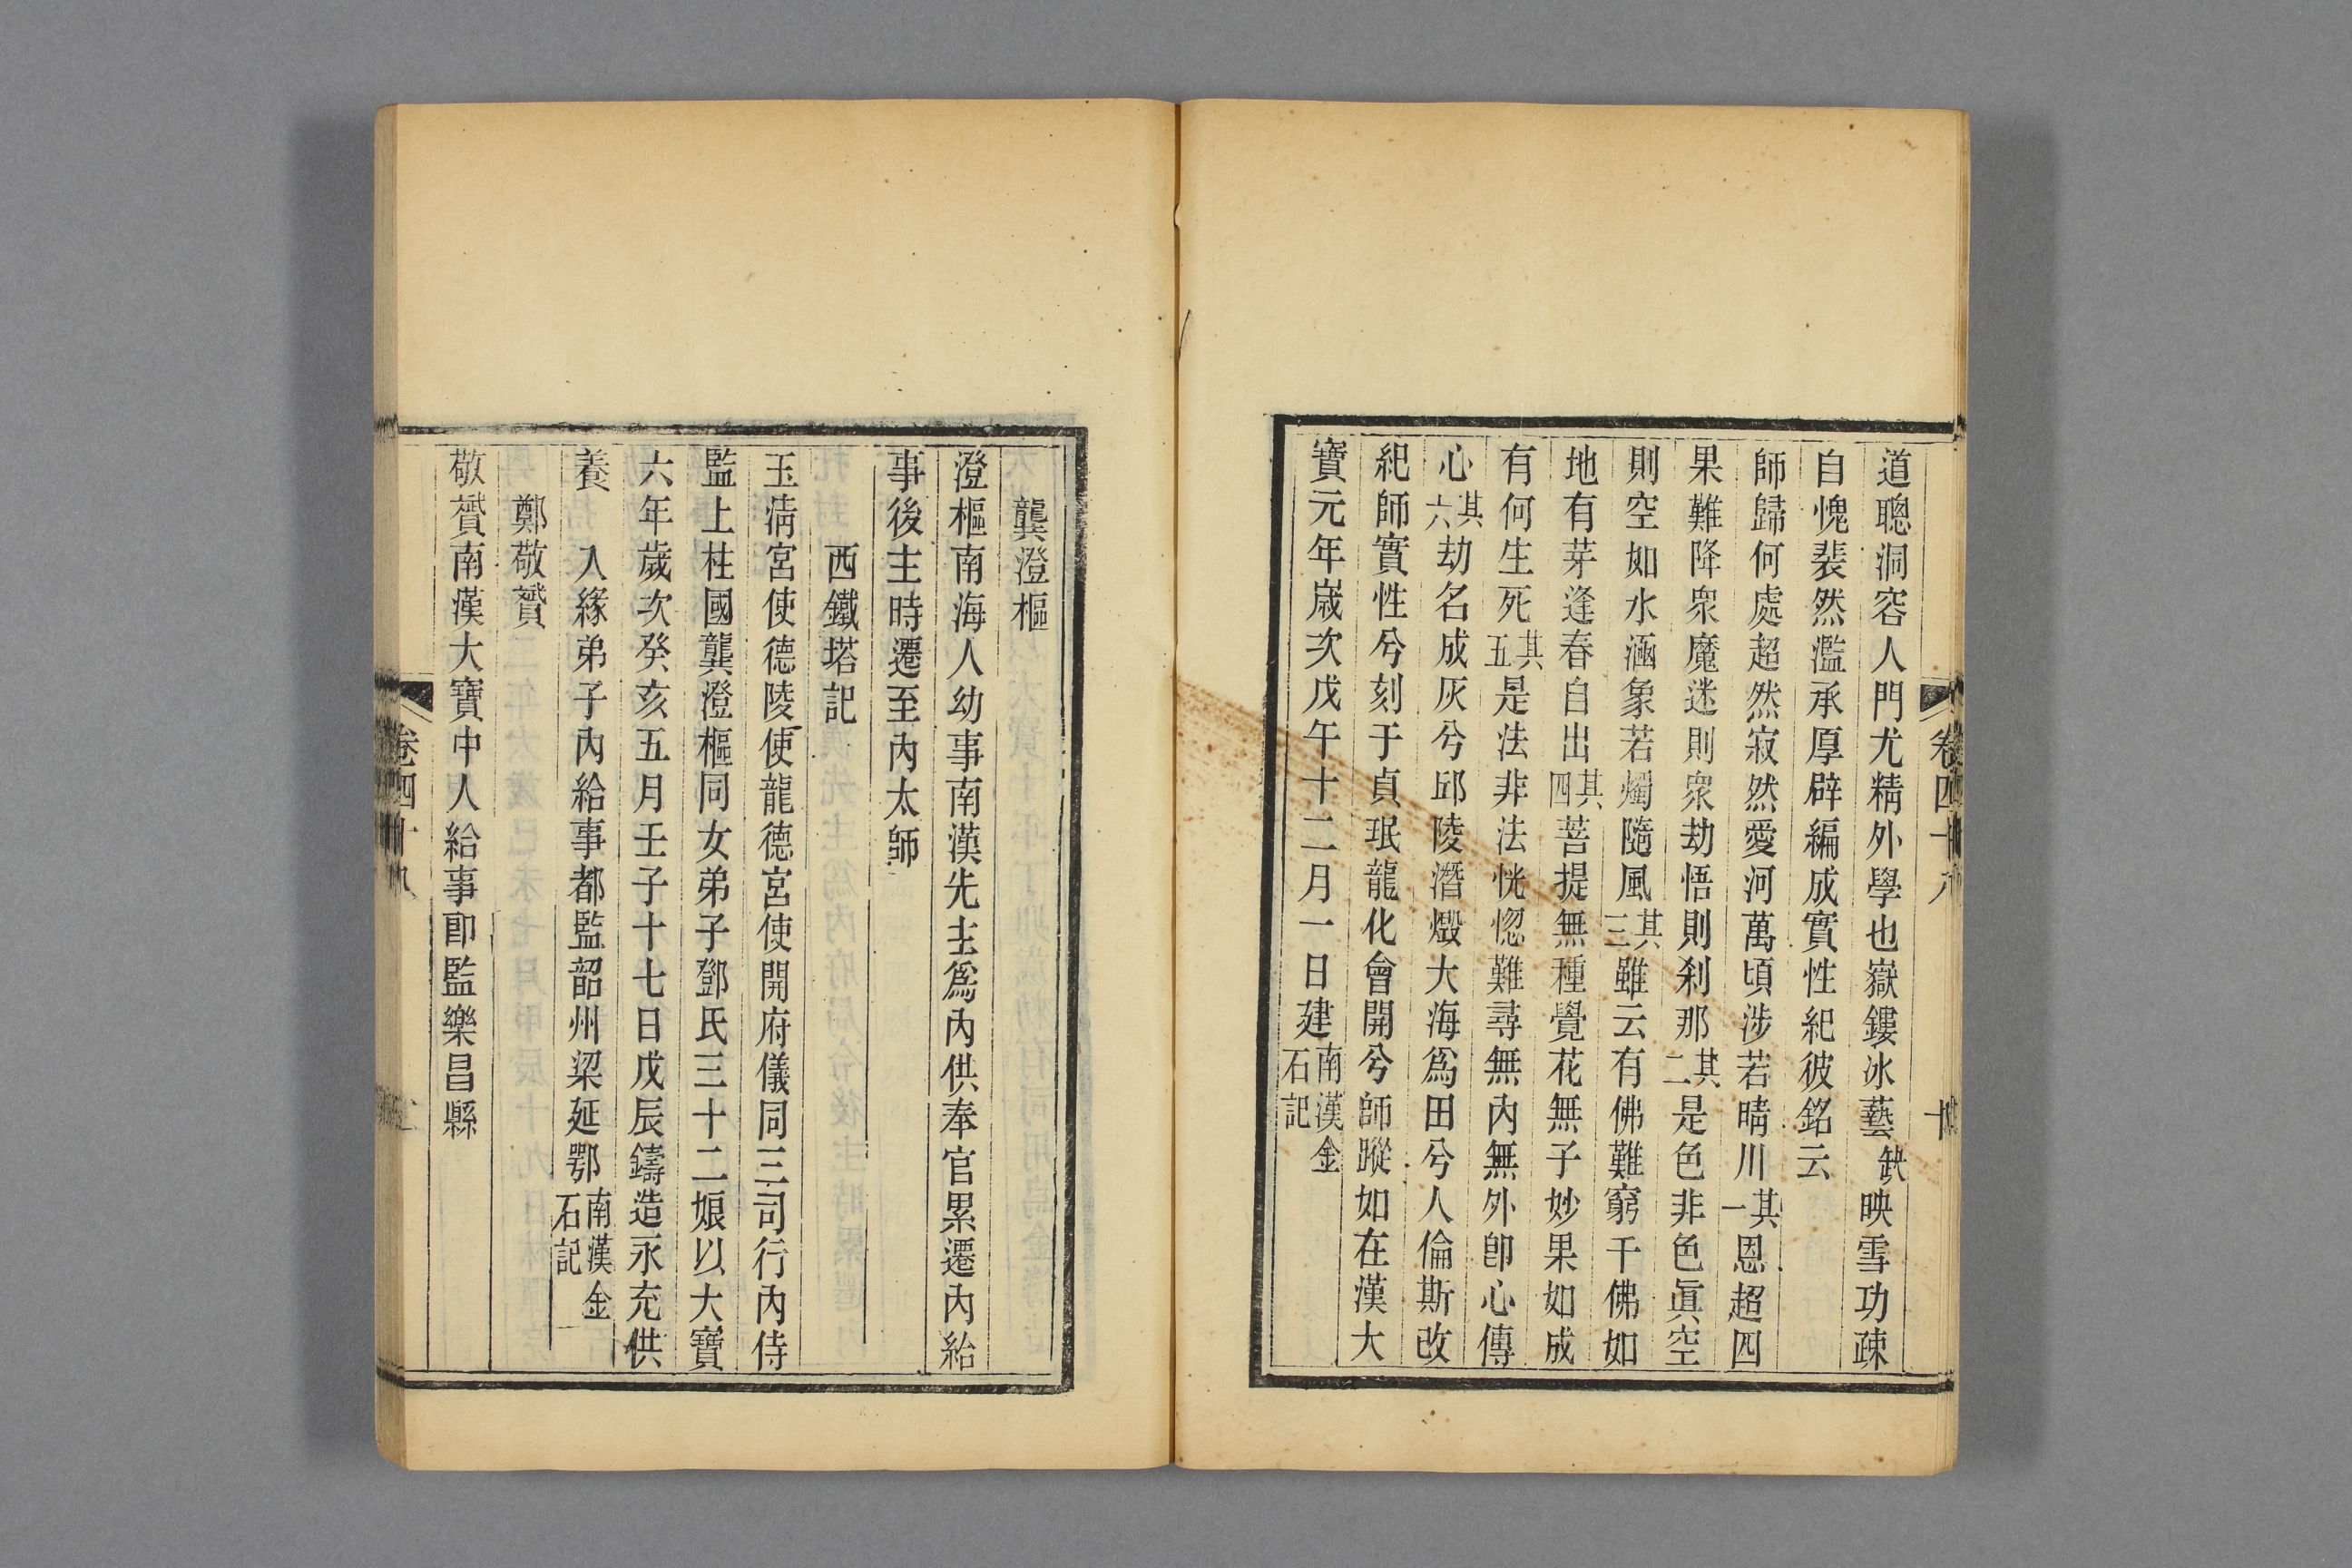 道聰洞容人門尤精外學也嶽鏤冰藝缺映雪功疎
自愧裴然濫承厚辟編成實性紀彼銘云
師歸何處超然寂然愛河萬頃涉若晴川其一恩超四
果難降衆魔迷則衆劫悟則刹那其二是色非色眞空
則空如水涵象若燭隨風其三雖云有佛難窮千佛如
地有芽逢春自出其四菩提無種覺花無子妙果如成
有何生死其五是法非法恍惚難尋無內無外卽心傳
心其六劫名成灰兮邱陵潛燬大海爲田兮人倫斯改
紀師實性兮刻于貞珉龍化會開兮師蹤如在漢大
寶元年歲次戊午十二月一日建南漢金石記
龔澄樞
澄樞南海人幼事南漢先主爲內供奉官累遷內給
事後主時遷至內太師
西鐵塔記
玉淸宮使德陵使龍德宮使開府儀同三司行內侍
監上柱國龔澄樞同女弟子鄧氏三十二娘以大寶
六年歲次癸亥五月壬子十七日戊辰鑄造永充供
養　入緣弟子內給事都監韶州梁延鄂南漢金石記
鄭敬贇
敬贇南漢大寶中人給事郎監樂昌縣
卷四十八